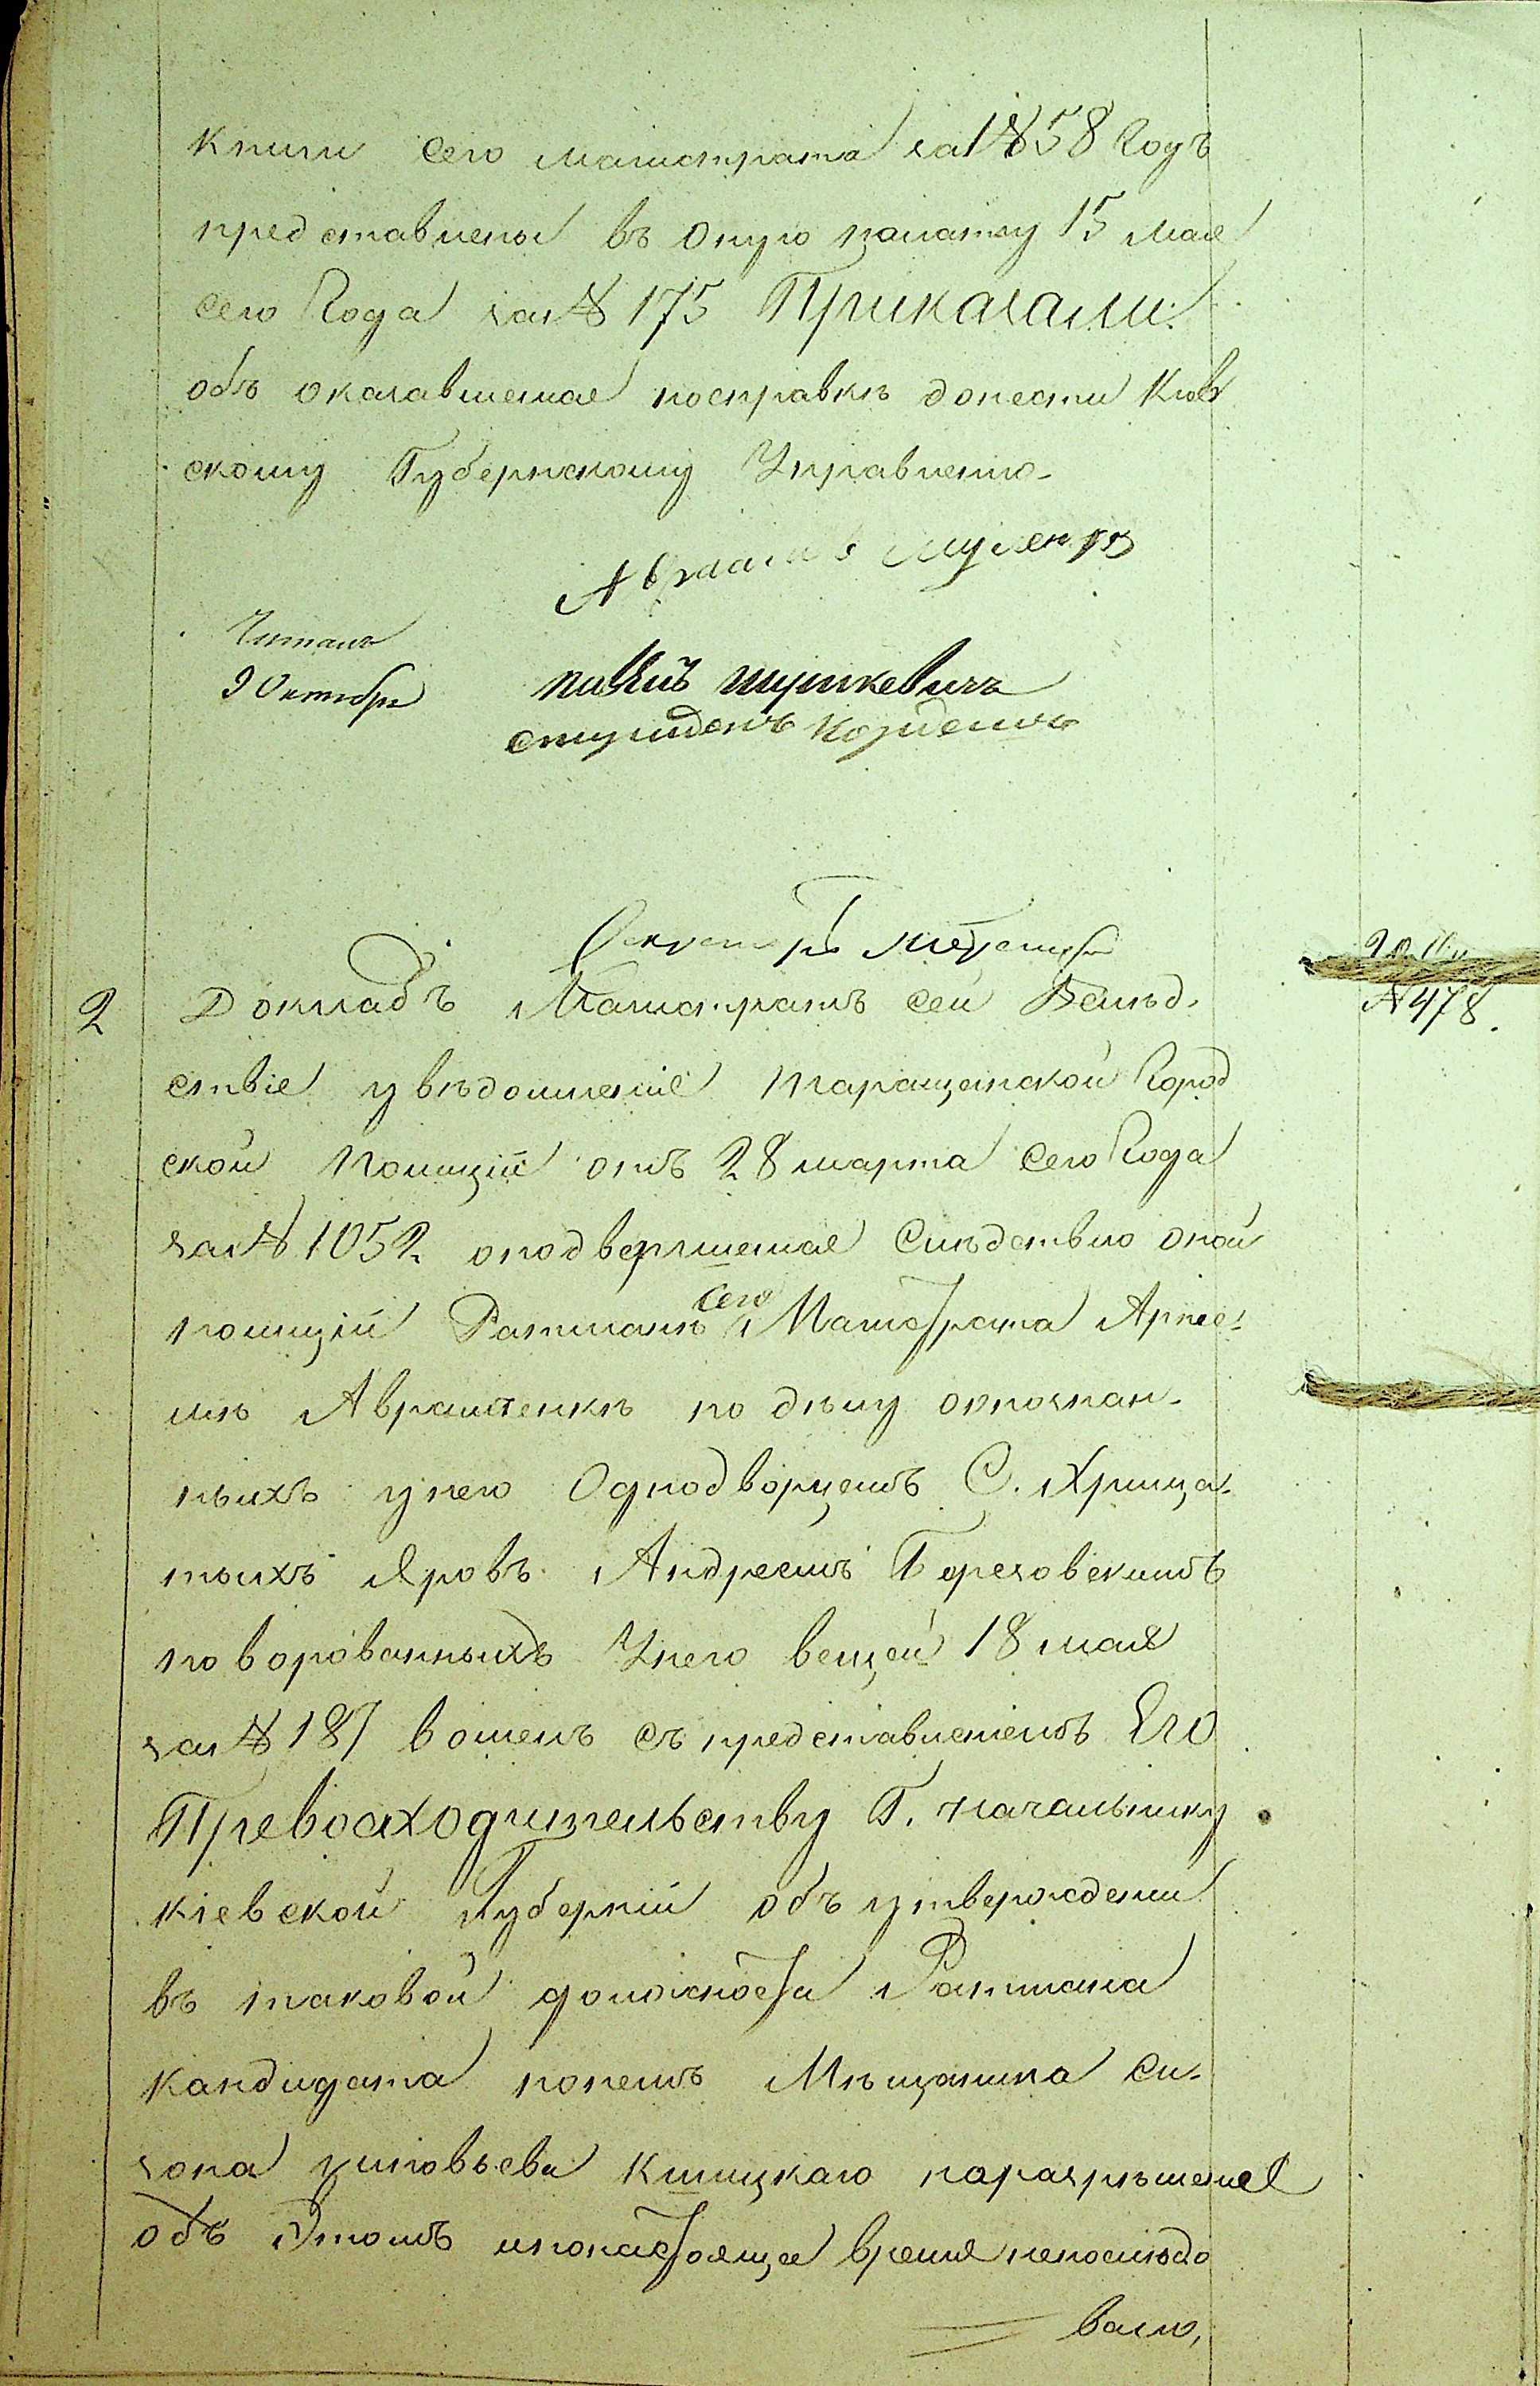 книги сего магистрата за 1858 Годъ
представлены въ оную палату 15 мая
сего Года за № 175 Приказали:
объ оказавшемся посправкѣ донести Кіев
скому Губернскому Управленію
Читалъ
9 Октября
шушкевичъ
Секретарь
2 Докладъ Магистратъ сей Вслѣд.
20 Окт.
№ 478.
ствіе увѣдомленіе Таращанской Город
ской Полиціи отъ 28 марта сего Года
за № 1052 оподвергшемся Слѣдствію оной
полиціи Ратманѣ сего Магистрата Артѣе
мѣ Авраменкѣ по дѣлу опознан-
ныхъ унего Однодворцемъ С. Хрища-
тыхъ Яровъ Андреемъ Березовскимъ
поворованныхъ Унего вещей 18 мая
за № 187 вошелъ съ представленіемъ Его
Превосходительству Г. начальнику
Кіевской Губерніи объ утвержденіи
въ таковой должности Ратмана
кандидата понемъ Мѣщанина Си-
зона Зиновьева Клицкаго норазрѣшенія
объ Этомъ ипонастоящее время непослѣдо
вало,